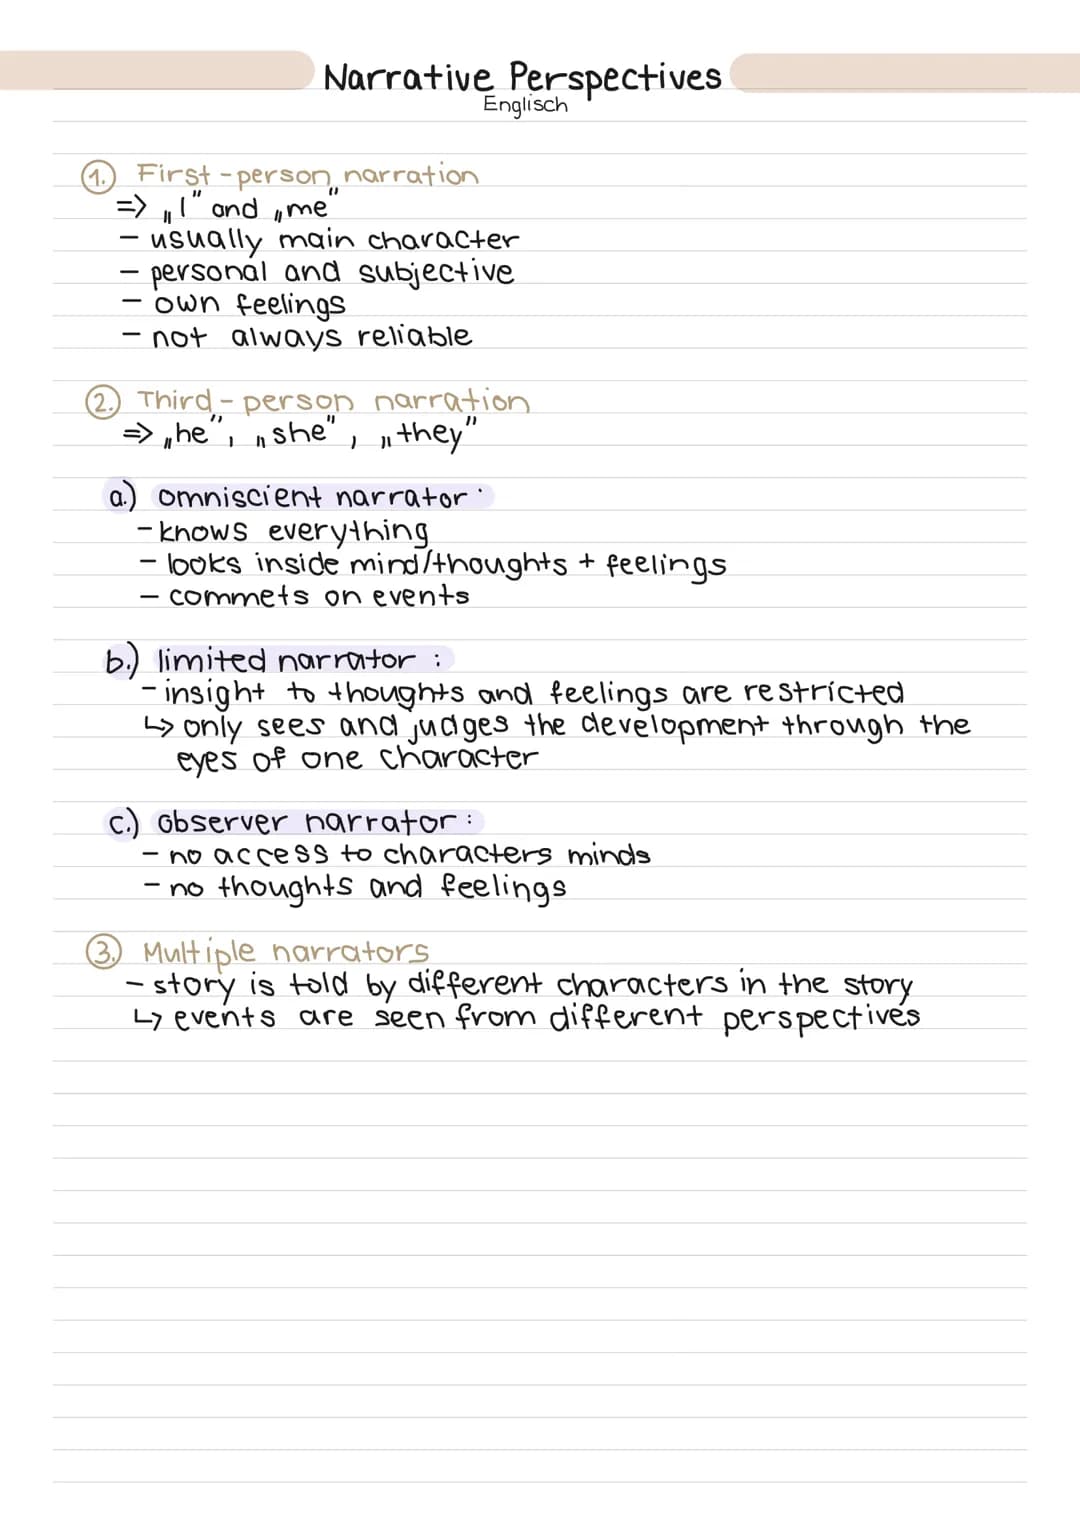 Narrative Perspectives
Englisch
1. First-person narration
=> „I" and „me"
- usually main character
- personal and subjective
- own feelings
- not always reliable
2. Third-person narration
=> „he", „she", „they"
a.) omniscient narrator:
- knows everything
- looks inside mind/thoughts + feelings
- commets on events
b.) limited narrator:
- insight to thoughts and feelings are restricted
↳ only sees and judges the development through the
eyes of one character
c.) observer narrator:
- no access to characters minds
- no thoughts and feelings
3. Multiple narrators
- story is told by different characters in the story
↳ events are seen from different perspectives